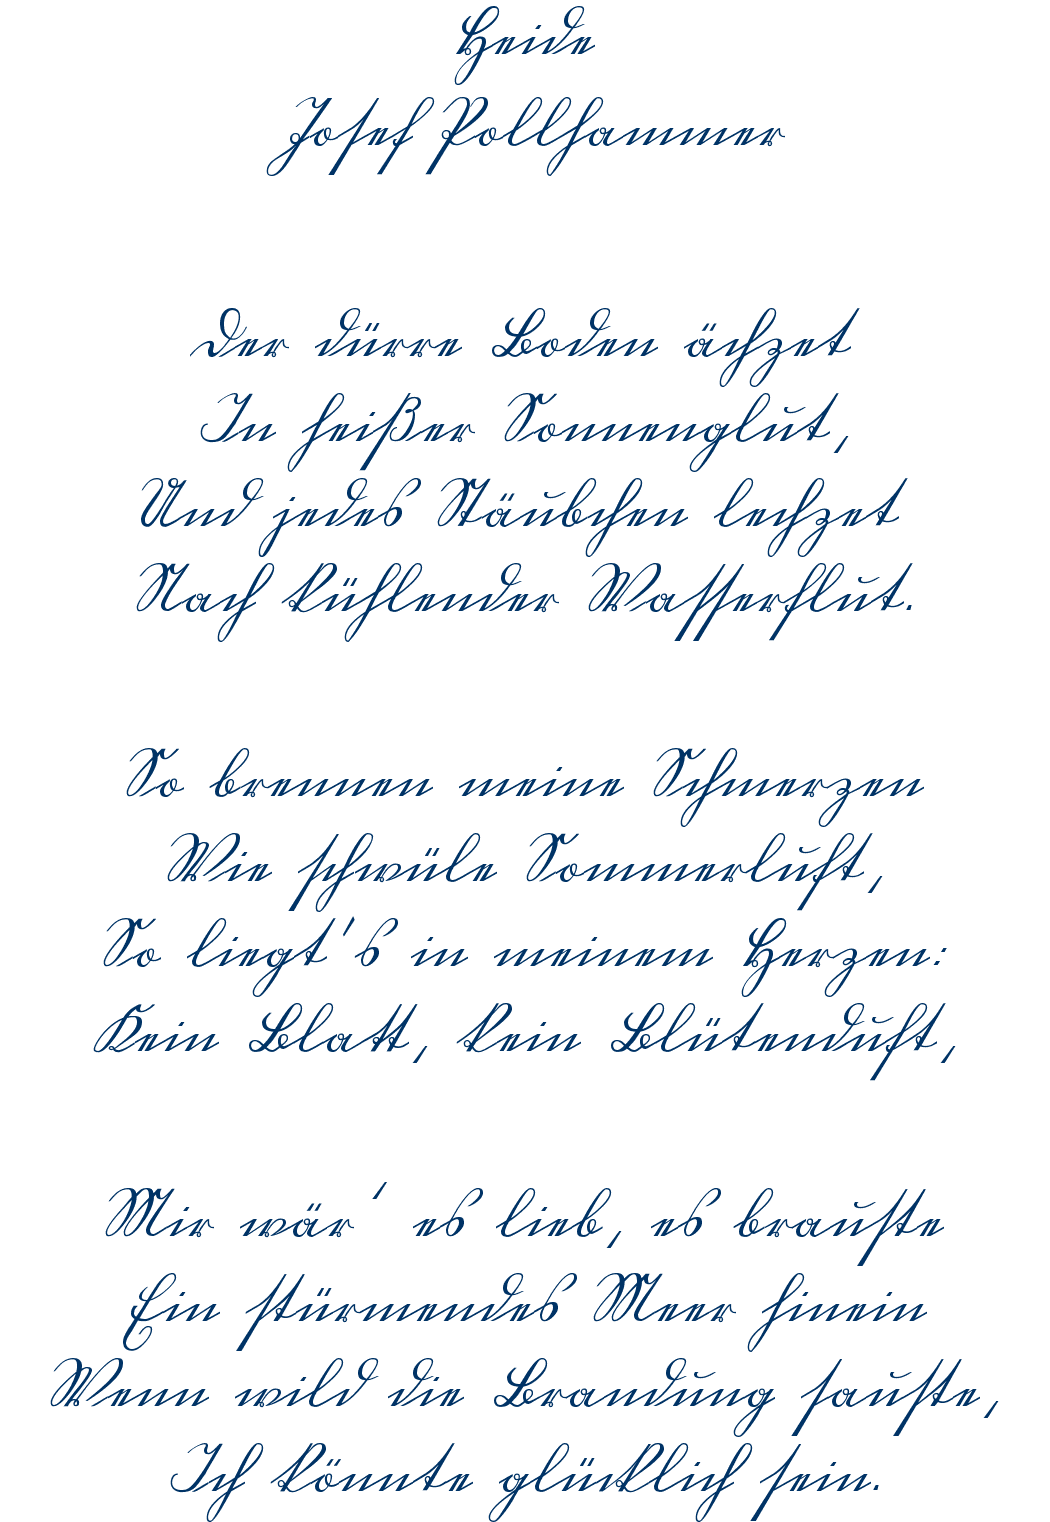 Heide
Josef Pollhammer
Der dürre Boden ächzet
In heißer Sonnenglut,
Und jedes Stäubchen lechzet
Nach kühlender Wasserflut.
So brennen meine Schmerzen
Wie schwüle Sommerluft,
So liegt's in meinem Herzen:
Kein Blatt, kein Blütenduft,
Mir wär' es lieb, es brauste
Ein stürmendes Meer hinein
Wenn wild die Brandung sauste,
Ich könnte glücklich sein.